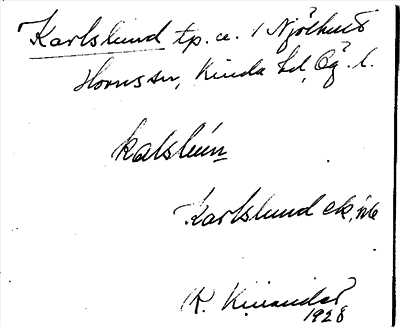 Karlslund tp. a. / Mjölhult
Horns sn, Kinda hd, Ög. l.
kalslu̇n
Karlslund ek, nb
R. Kinander
1928